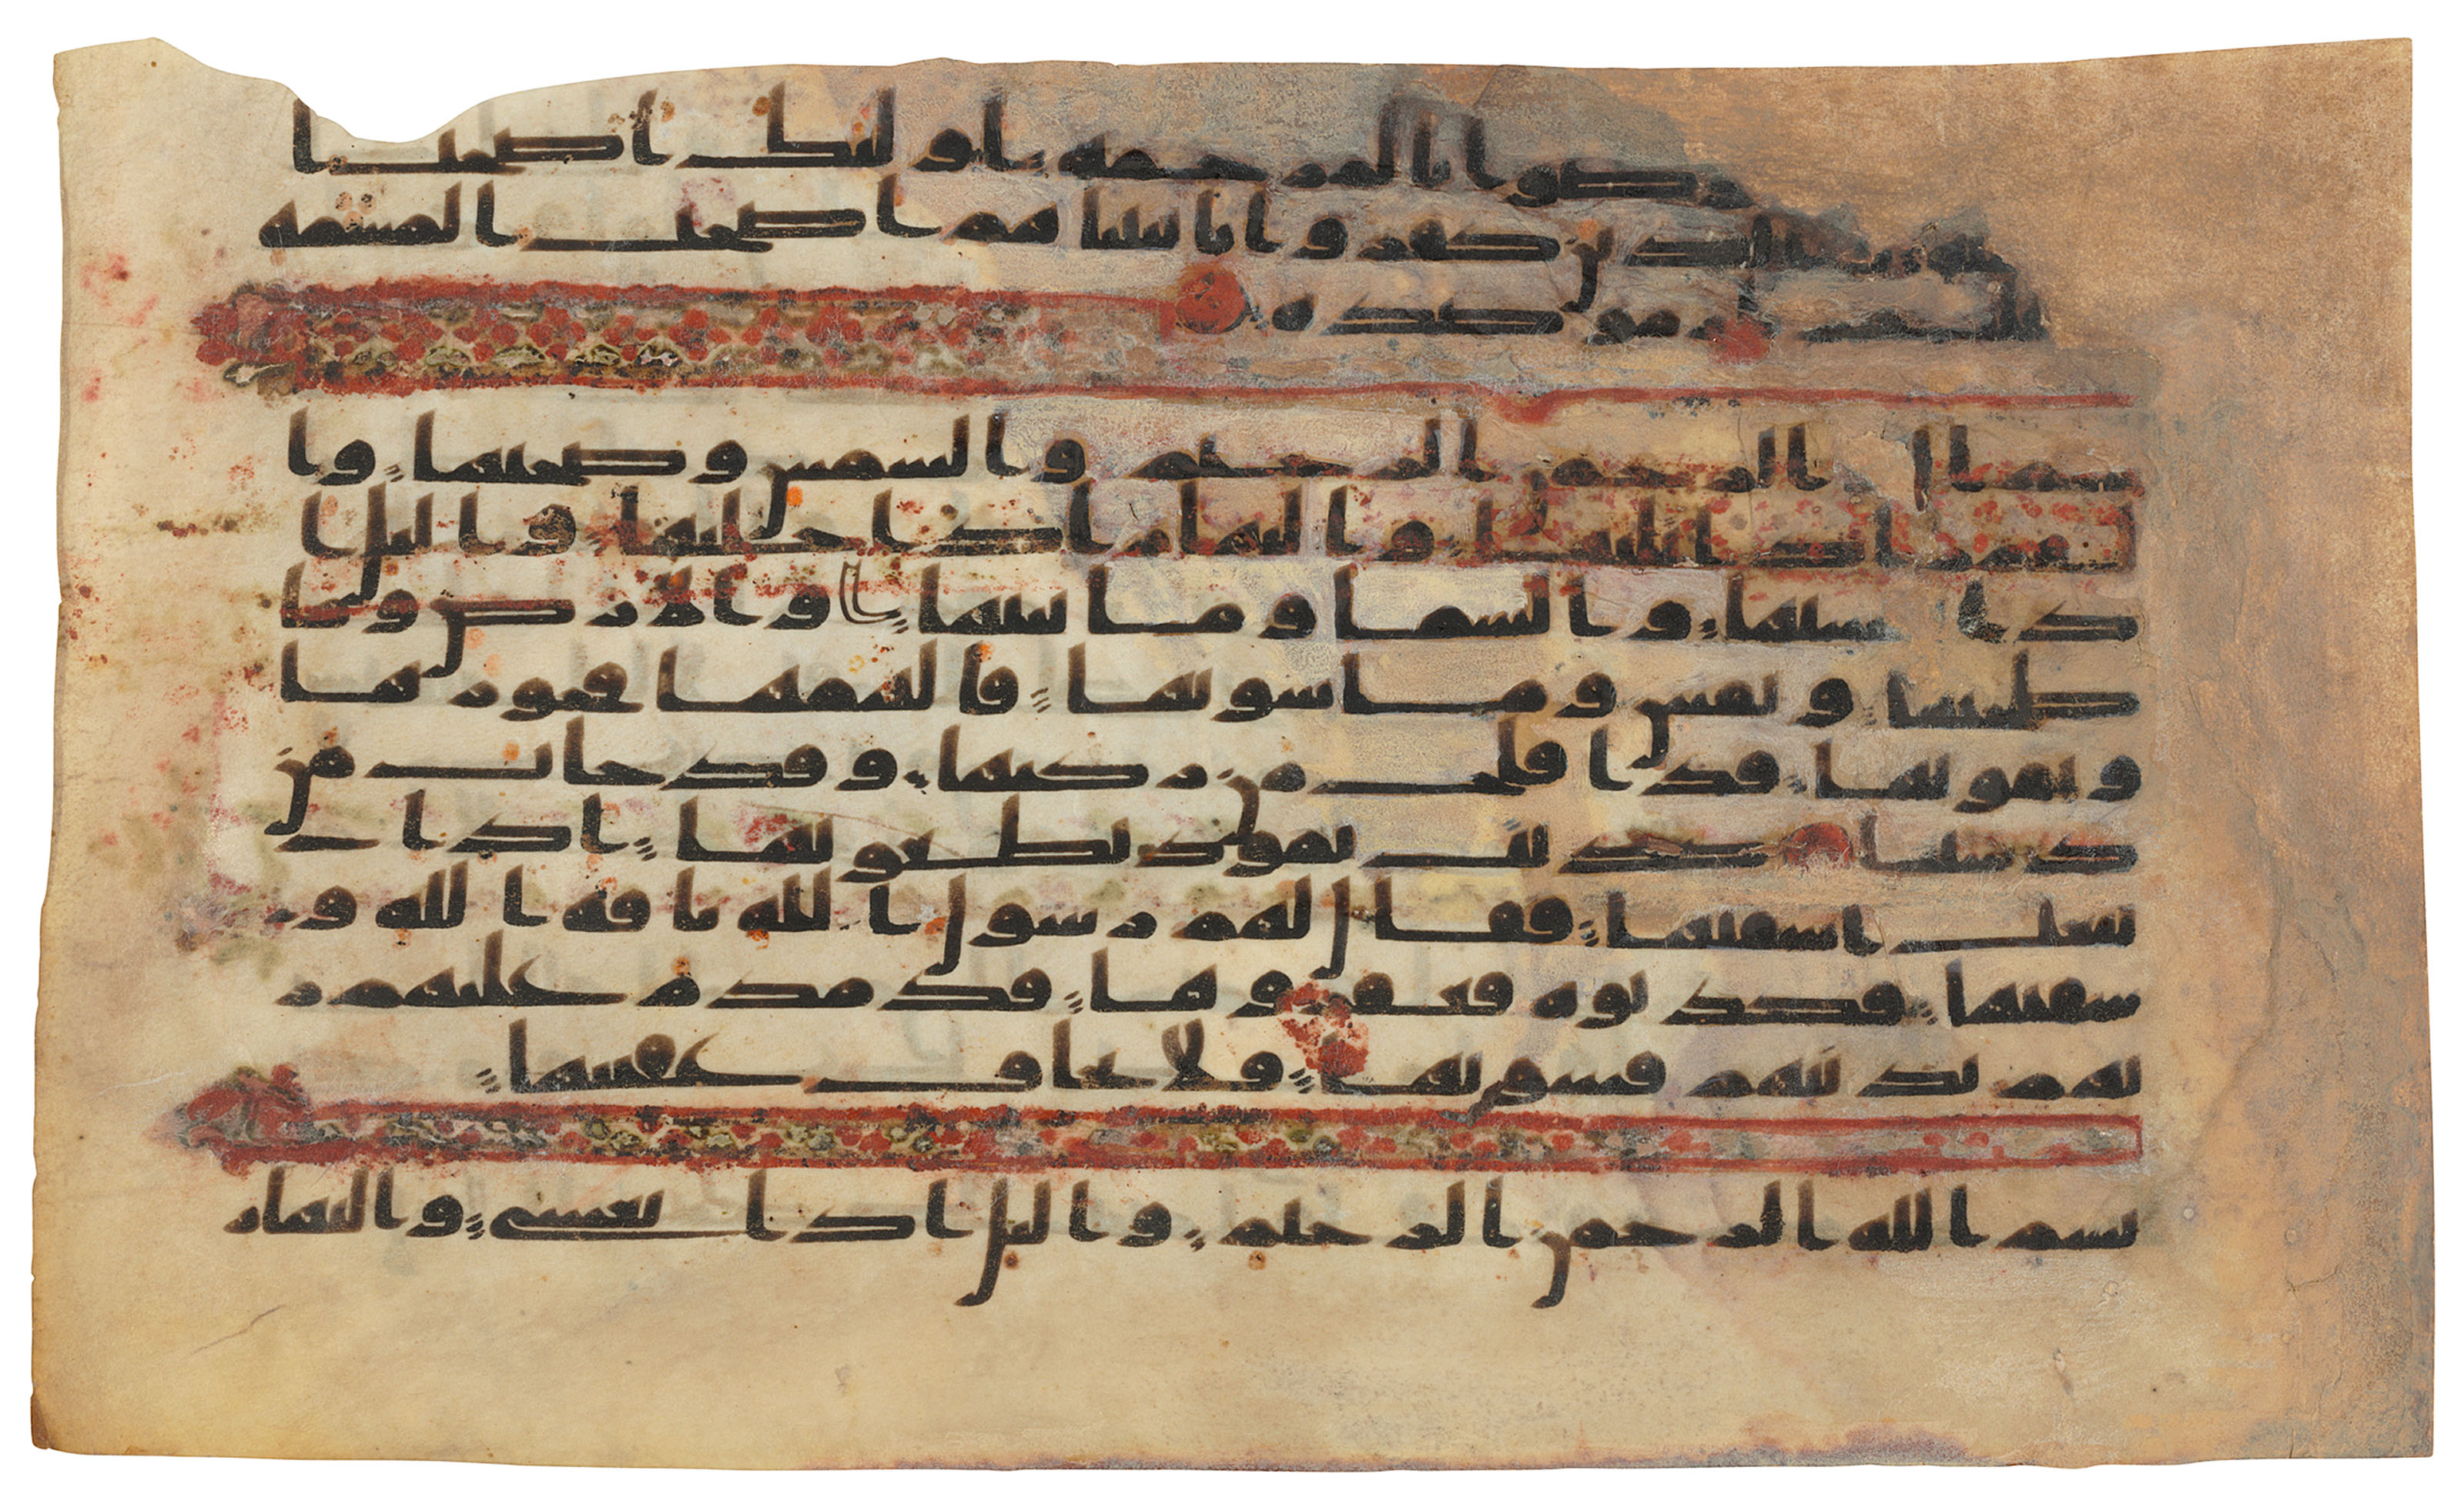 وصوا بالمرحمة اولئك اصحب ا
الذين كفروا بايتنا هم اصحب المشمة
عليهم نار موصدة
بسم الله الرحمن الرحيم والشمس وضحيها وا
لقمر اذا تليها والنهار اذا جليها واليل ا
ذا يغشيها والسما وما بنيها والارض وما
طحيها ونفس وما سويها فالهمها فجورها
وتقويها قد افلح من زكيها وقد خاب من
دسيها كذبت ثمود بطغويها اذ ا
نبعث اشقيها فقال لهم رسول الله ناقة الله و
سقيها فكذبوه فعقروها فدمدم عليهم ر
بهم بذنبهم فسويها فلا يخاف عقبيها
بسم الله الرحمن الرحيم واليل اذا يغشى والنهار